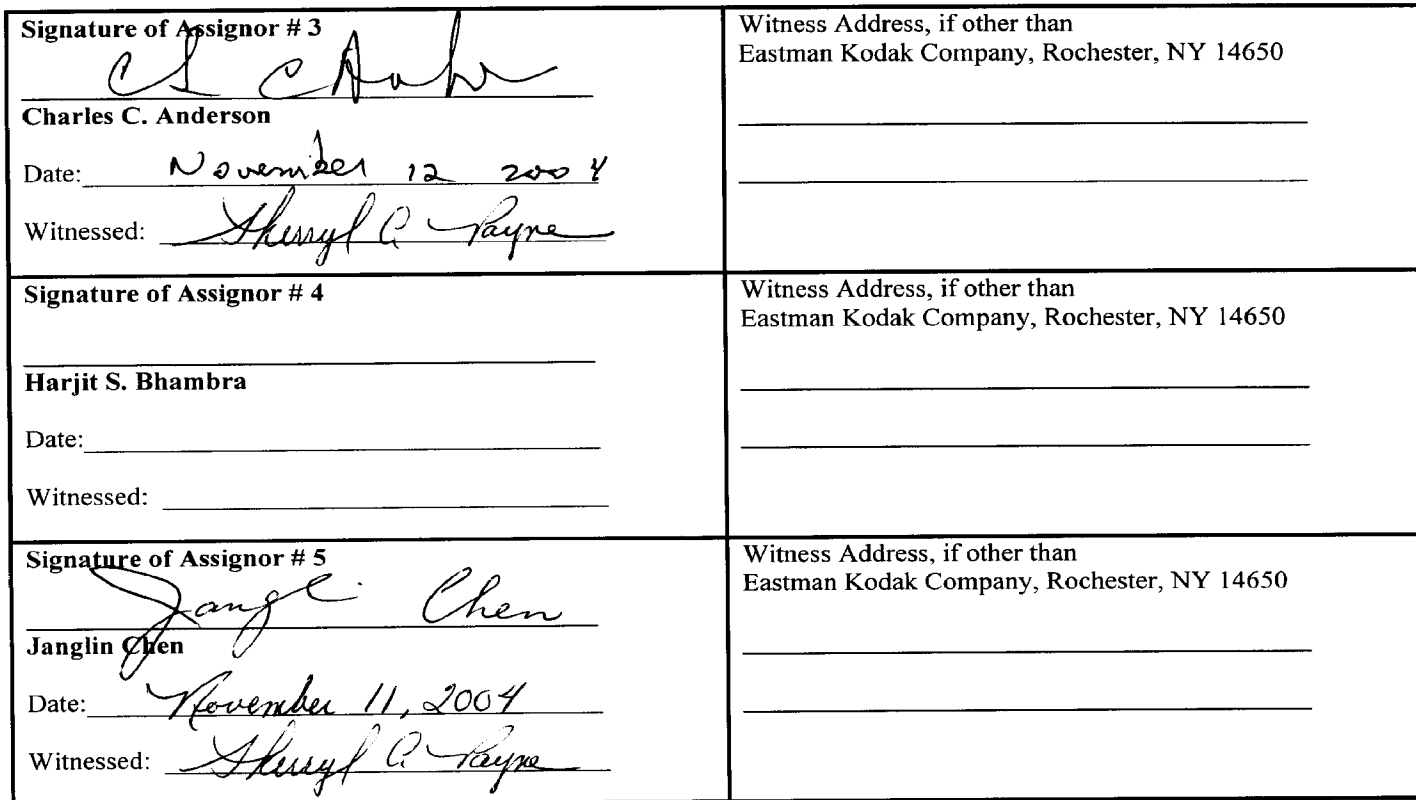 Signature of Assignor # 3
Charles C. Anderson
Date: November 12 2004
Witnessed: Sherryl A. Payne
Witness Address, if other than
Eastman Kodak Company, Rochester, NY 14650
Signature of Assignor # 4
Harjit S. Bhambra
Date:
Witnessed:
Witness Address, if other than
Eastman Kodak Company, Rochester, NY 14650
Signature of Assignor # 5
Jangli Chen
Janglin Chen
Date: November 11, 2004
Witnessed: Sherryl A. Payne
Witness Address, if other than
Eastman Kodak Company, Rochester, NY 14650